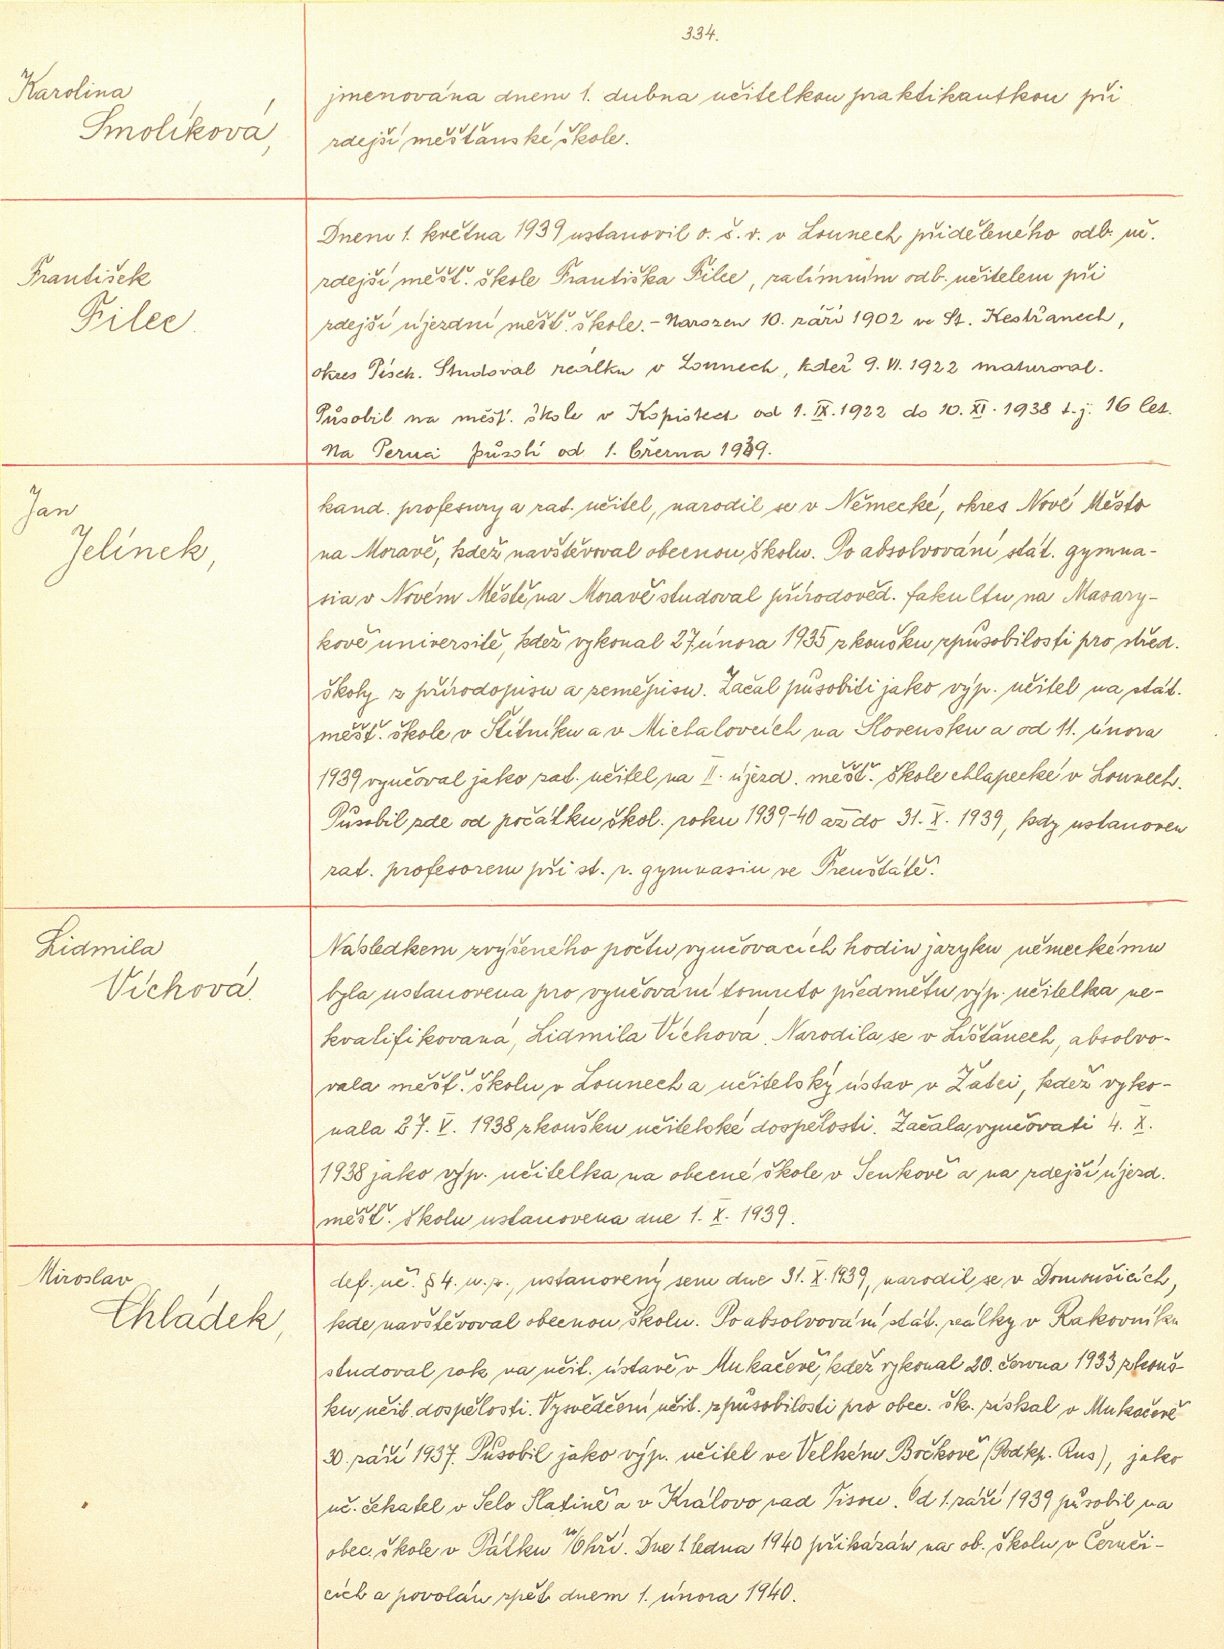 334.
Karolina
Smolíková,
jmenována dnem 1. dubna učitelkou praktikantkou při
zdejší měšťanské škole.
František
Filec
Dnem 1. května 1939 ustanovil o. š. v. v Lounech přiděleného odb. uč.
zdejší měšť. škole Františka Filce, zatímním odb. učitelem při
zdejší újezdní měšť. škole. - Narozen 10. září 1902 ve St. Kestřanech,
okres Písek. Studoval reálku v Lounech, kdež 9. VI. 1922 maturoval.
Působil na měšť. škole v Kopistech od 1. IX. 1922 do 10. XI. 1938 t. j. 16 let.
Na Peruci působí od 1. března 1939.
Jan
Jelínek,
kand. profesury a zat. učitel, narodil se v Německé, okres Nové Město
na Moravě, kdež navštěvoval obecnou školu. Po absolvování stát. gymna-
sia v Novém Městě na Moravě studoval přírodověd. fakultu na Masary-
kově universitě, kdež vykonal 27. února 1935 zkoušku způsobilosti pro střed.
školy z přírodopisu a zeměpisu. Začal působiti jako výp. učitel na stát.
měšť. škole v Štítníku a v Michalovcích na Slovensku a od 11. února
1939 vyučoval jako zat. učitel na II. újezd. měšť. škole chlapecké v Lounech.
Působil zde od počátku škol. roku 1939-40 až do 31. X. 1939, kdy ustanoven
zat. profesorem při st. r. gymnasiu ve Frenštátě.
Lidmila
Víchová.
Následkem zvýšeného počtu vyučovacích hodin jazyku německému
byla ustanovena pro vyučování tomuto předmětu výp. učitelka ne-
kvalifikovaná, Lidmila Víchová. Narodila se v Líšťanech, absolvo-
vala měšť. školu v Lounech a učitelský ústav v Žatci, kdež vyko-
nala 27. V. 1938 zkoušku učitelské dospělosti. Začala vyučovati 4. X.
1938 jako výp. učitelka na obecné škole v Senkově a na zdejší újezd.
měšť. školu ustanovena dne 1. X. 1939.
Miroslav
Chládek,
def. uč. § 4. u. z., ustanovený sem dne 31. X. 1939, narodil se v Domoušicích,
kde navštěvoval obecnou školu. Po absolvování stát. reálky v Rakovníku
studoval rok na učit. ústavě v Mukačevě, kdež vykonal 20. června 1933 zkouš-
ku učit. dospělosti. Vysvědčení učit. způsobilosti pro obec. šk. získal v Mukačevě
30. září 1937. Působil jako výp. učitel ve Velkém Bočkově (Podkp. Rus), jako
uč. čekatel v Selo Slatině a v Královo nad Tisou. Od 1. září 1939 působil na
obec. škole v Pátku n/Ohří. Dne 1. ledna 1940 přikázán na ob. školu v Černči-
cích a povolán zpět dnem 1. února 1940.